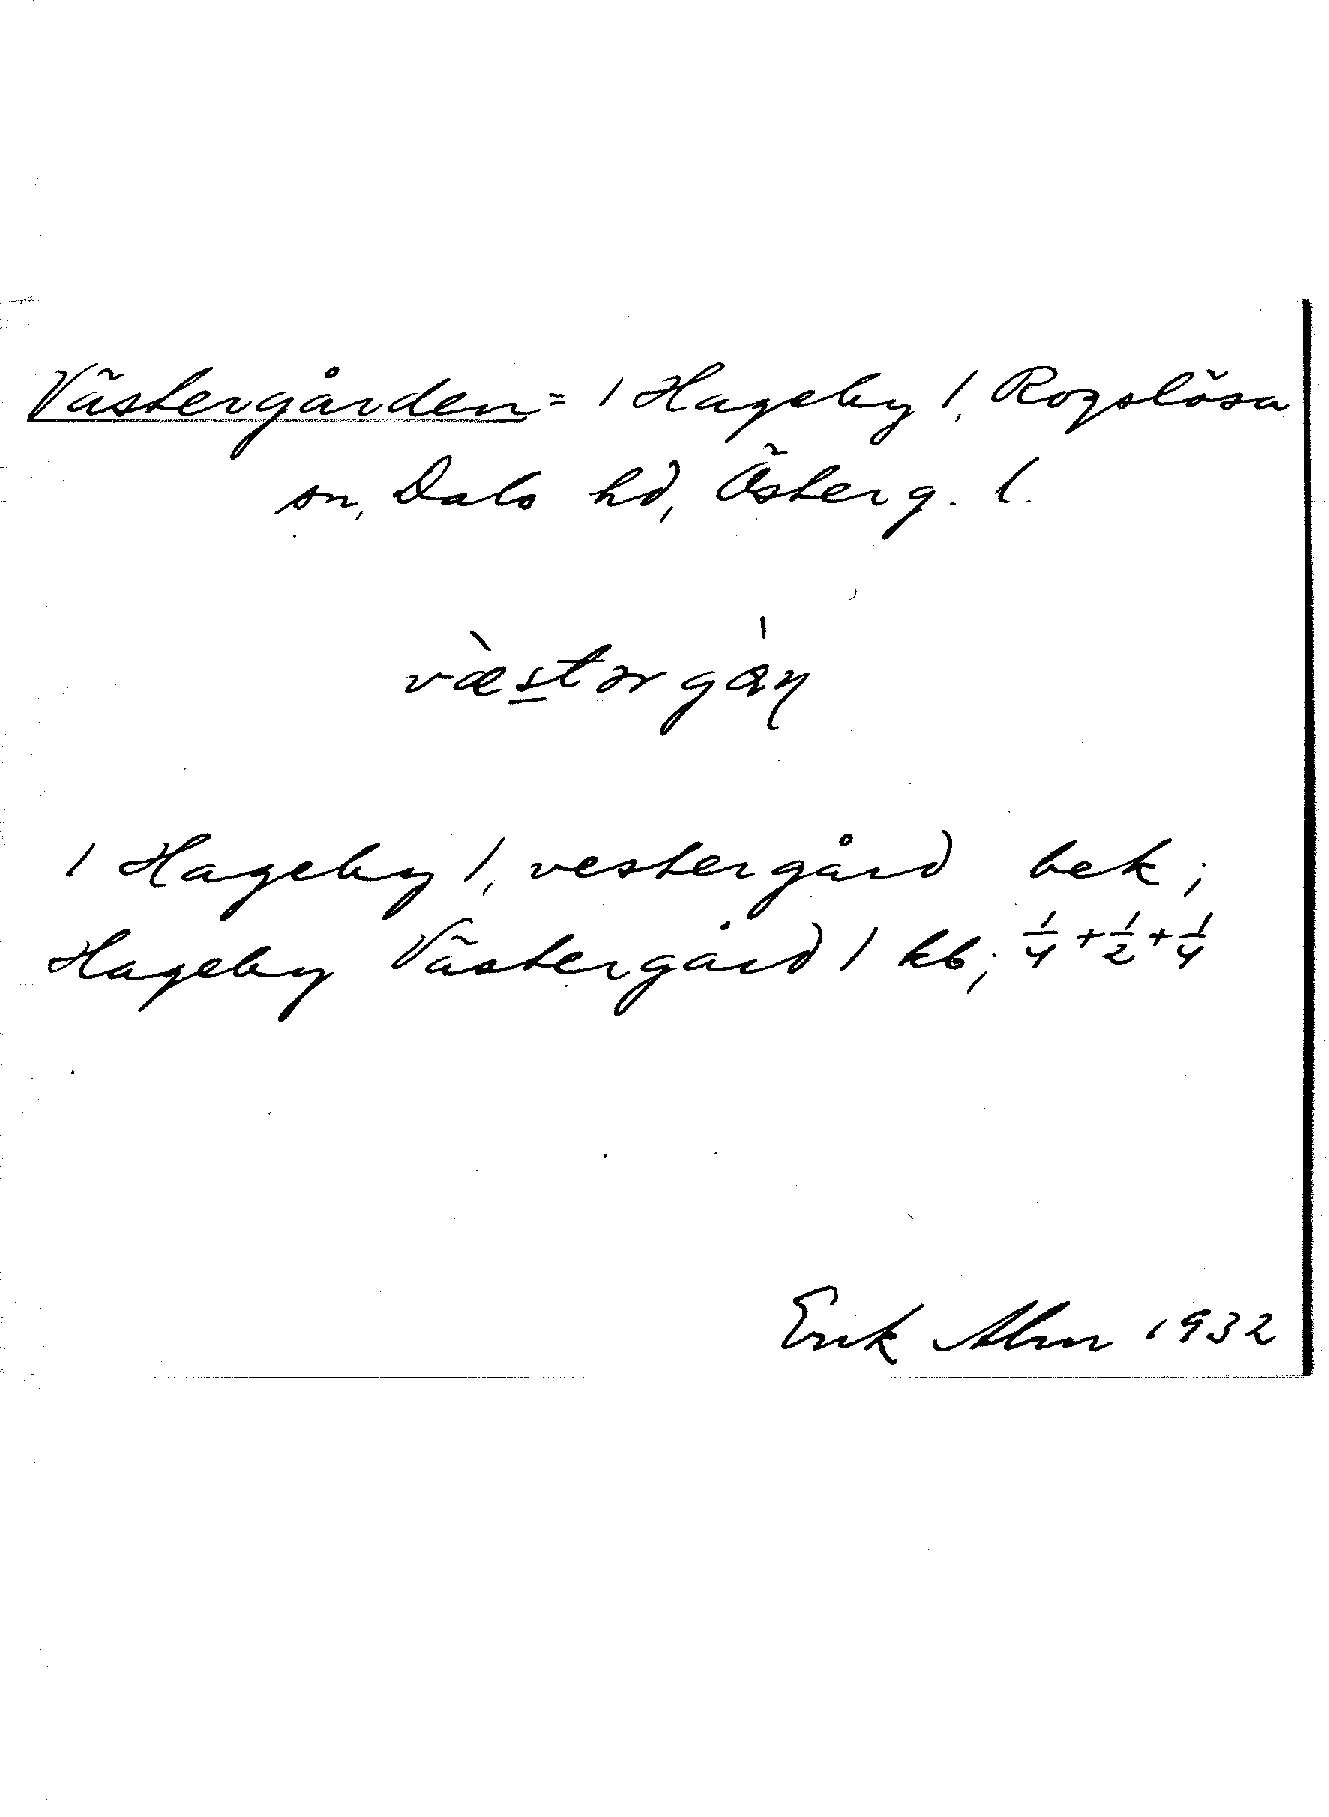 Västergården = 1 Hageby 1, Rogslösa
sn, Dals hd, Österg. l.
væ̀stərgɑ̀ṇ
1 Hageby 1, vestergård bek;
Hageby Västergård 1 kb; 1/4 + 1/2 + 1/4
Erik Alm 1932